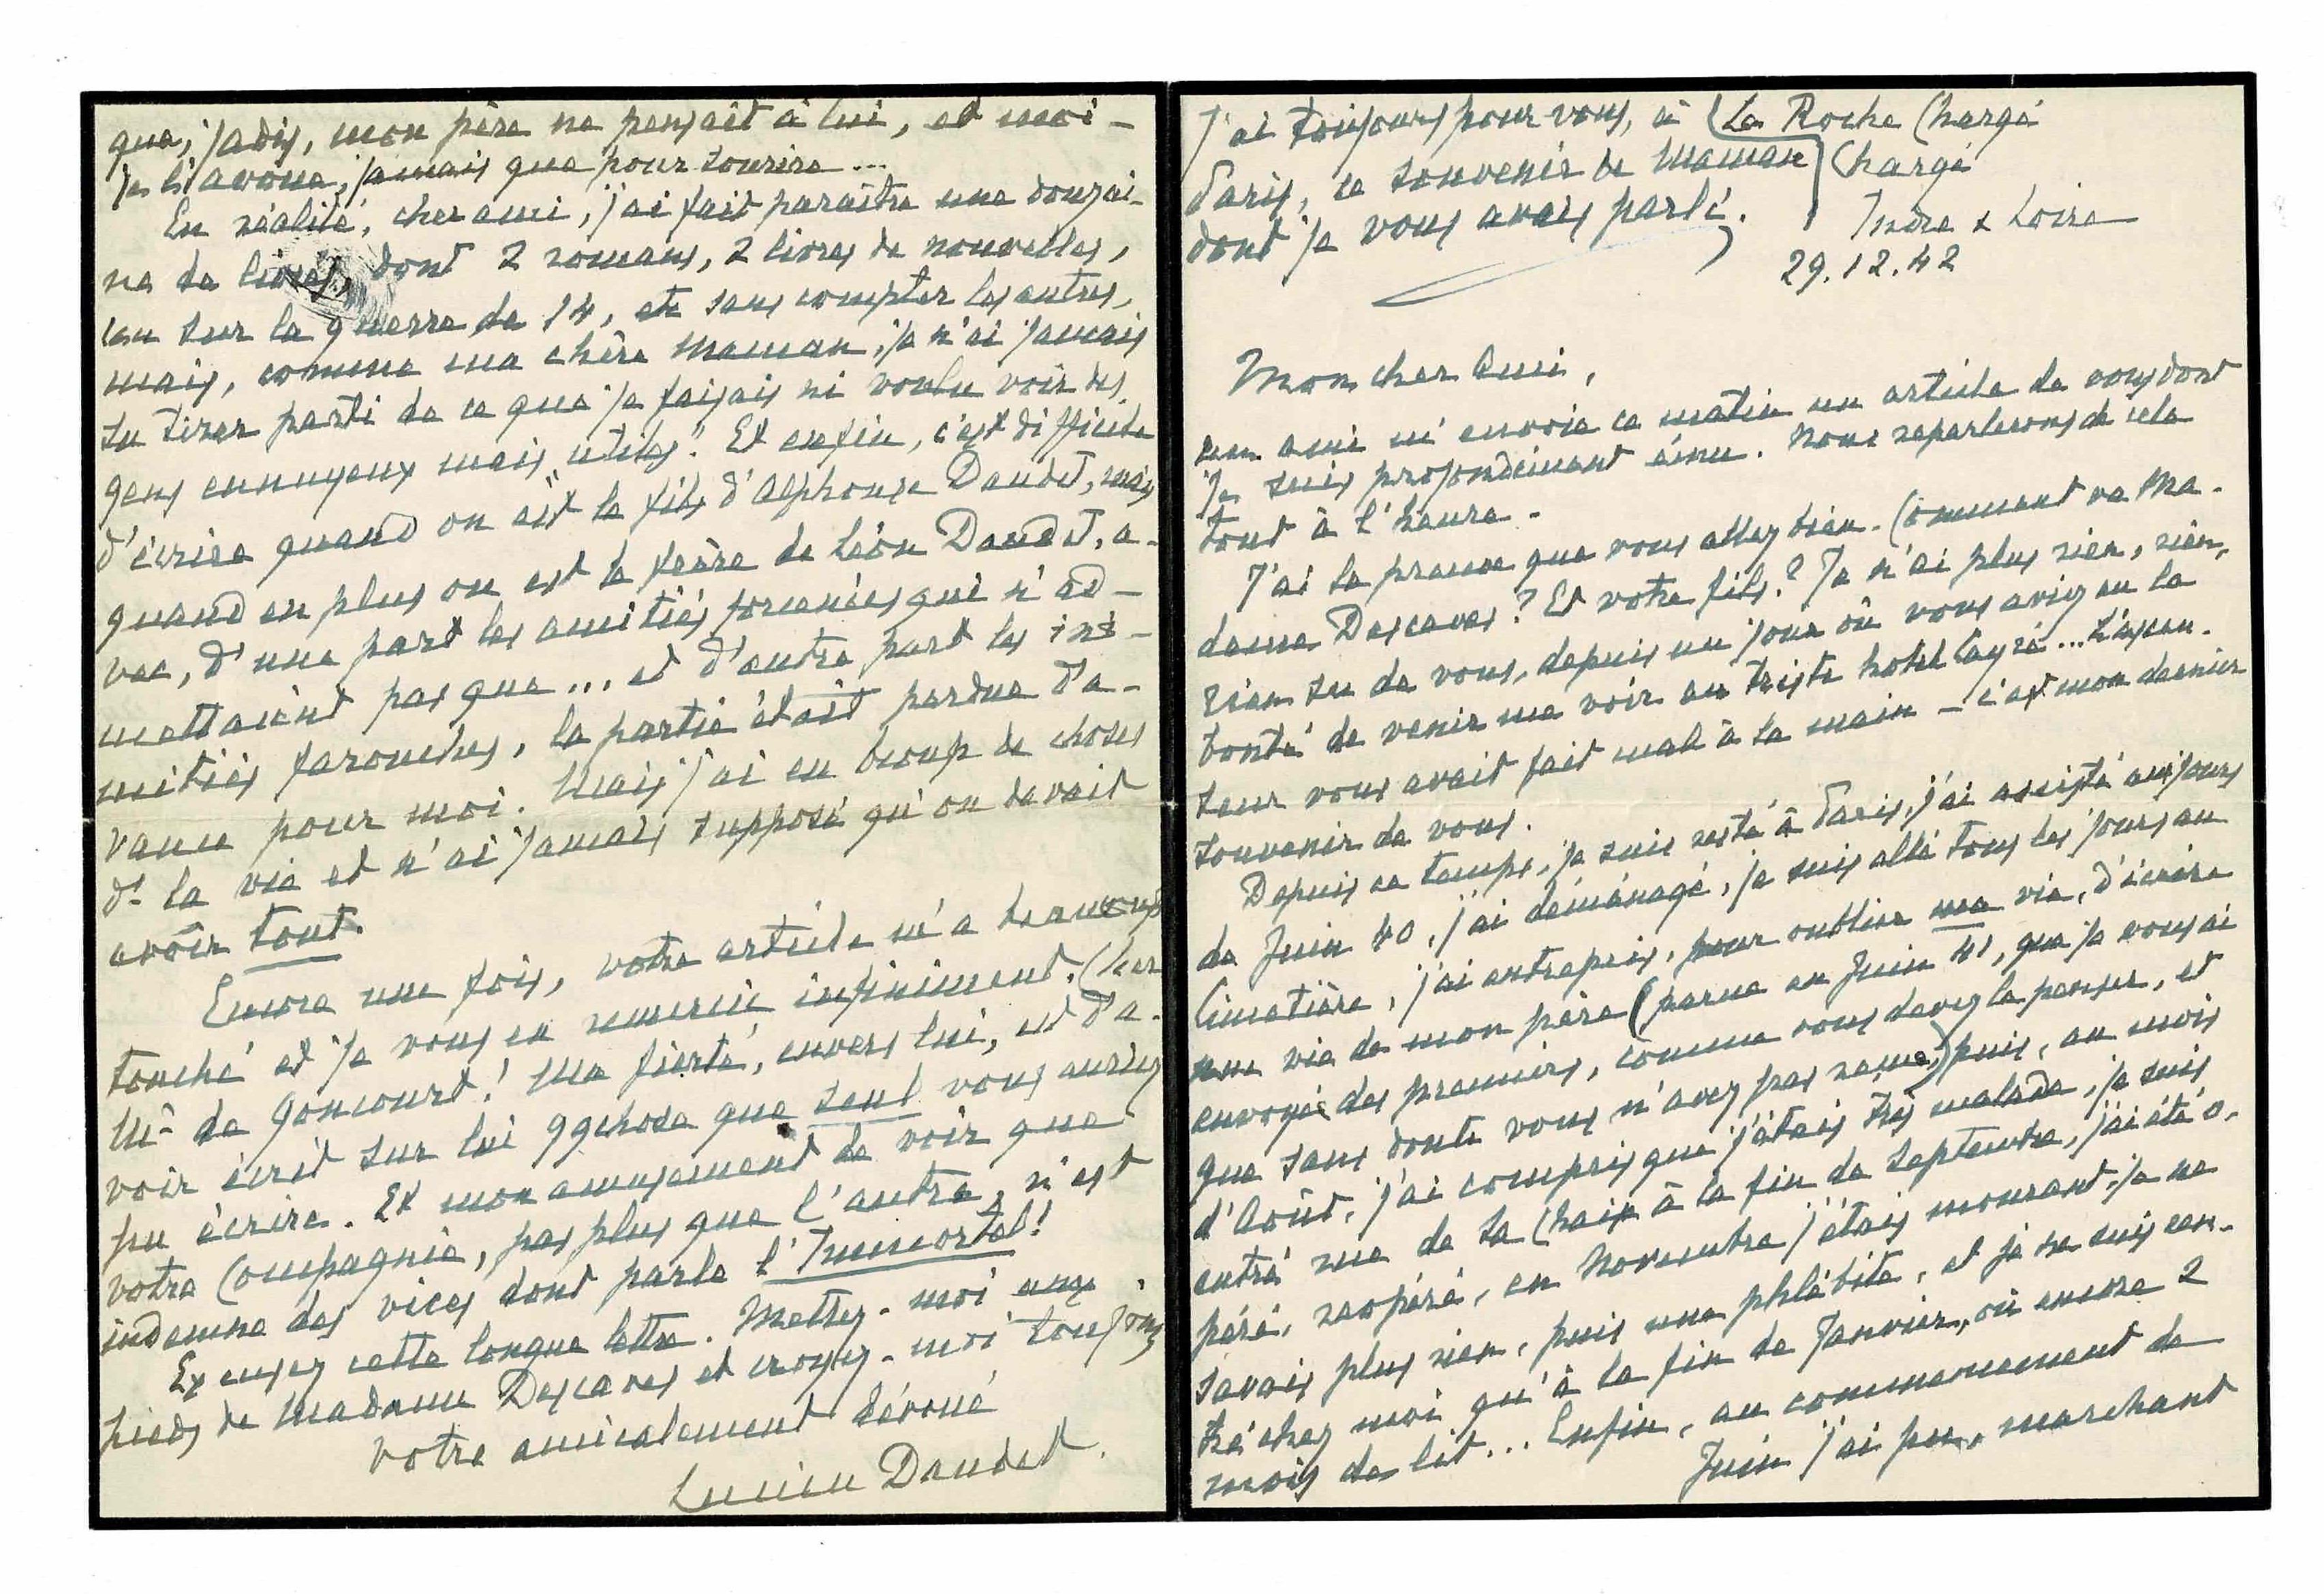 J'ai toujours pour vous, à
Paris, ce souvenir de Maman
dont je vous avais parlé.
La Roche Chargé
Chargé
Indre & Loire
29.12.42
Mon cher Ami,
un ami m'envoie ce matin un article de vous dont
je suis profondément ému. Nous reparlerons de cela
tout à l'heure.
J'ai la preuve que vous allez bien. Comment va Ma-
dame Descaves? Et votre fils? Je n'ai plus rien, rien,
rien su de vous, depuis un jour où vous aviez eu la
bonté de venir me voir au triste hotel Cayré... L'ascen-
seur vous avait fait mal à la main — c'est mon dernier
souvenir de vous.
Depuis ce temps, je suis resté à Paris, j'ai assisté aux jours
de Juin 40, j'ai déménagé, je suis allé tous les jours au
Cimetière, j'ai entrepris, pour oublier ma vie, d'écrire
une vie de mon père (parue en Juin 41, que je vous ai
envoyée des premiers, comme vous devez le penser, et
que sans doute vous n'avez pas reçue) puis, au mois
d'Août, j'ai compris que j'étais très malade, je suis
entré rue de la Chaise à la fin de Septembre, j'ai été o-
péré, réopéré, en Novembre j'étais mourant, je ne
savais plus rien, puis une phlébite, et je ne suis ren-
tré chez moi qu'à la fin de Janvier, où encore 2
mois de lit... Enfin, au commencement de
Juin j'ai pu, marchant
que, jadis, mon père ne pensait à lui, et moi —
je l'avoue, jamais que pour sourire...
En réalité, cher ami, j'ai fait paraître une douzai-
ne de livres, dont 2 romans, 2 livres de nouvelles,
un sur la guerre de 14, etc sans compter les autres,
mais, comme ma chère Maman, je n'ai jamais
su tirer parti de ce que je faisais ni voulu voir des
gens ennuyeux mais "utiles". Et enfin, c'est difficile
d'écrire quand on est le fils d'Alphonse Daudet, mais
quand en plus on est le frère de Léon Daudet, a-
vec, d'une part les amitiés forcenées qui n'ad-
mettaient pas que... et d'autre part les ini-
mitiés farouches, la partie était perdue d'a-
vance pour moi. Mais j'ai eu bcoup de choses
ds la vie et n'ai jamais supposé qu'on devait
avoir tout.
Encore une fois, votre article m'a beaucoup
touché et je vous en remercie infiniment. Cher
Mr de Goncourt! Ma fierté, envers lui, est d'a-
voir écrit sur lui qqchose que seul vous auriez
pu écrire. Et mon amusement de voir que
votre Compagnie, pas plus que l'autre, n'est
indemne des vices dont parle l'Immortel!
Excusez cette longue lettre. Mettez-moi aux
pieds de Madame Descaves et croyez-moi toujours
votre amicalement dévoué
Lucien Daudet.